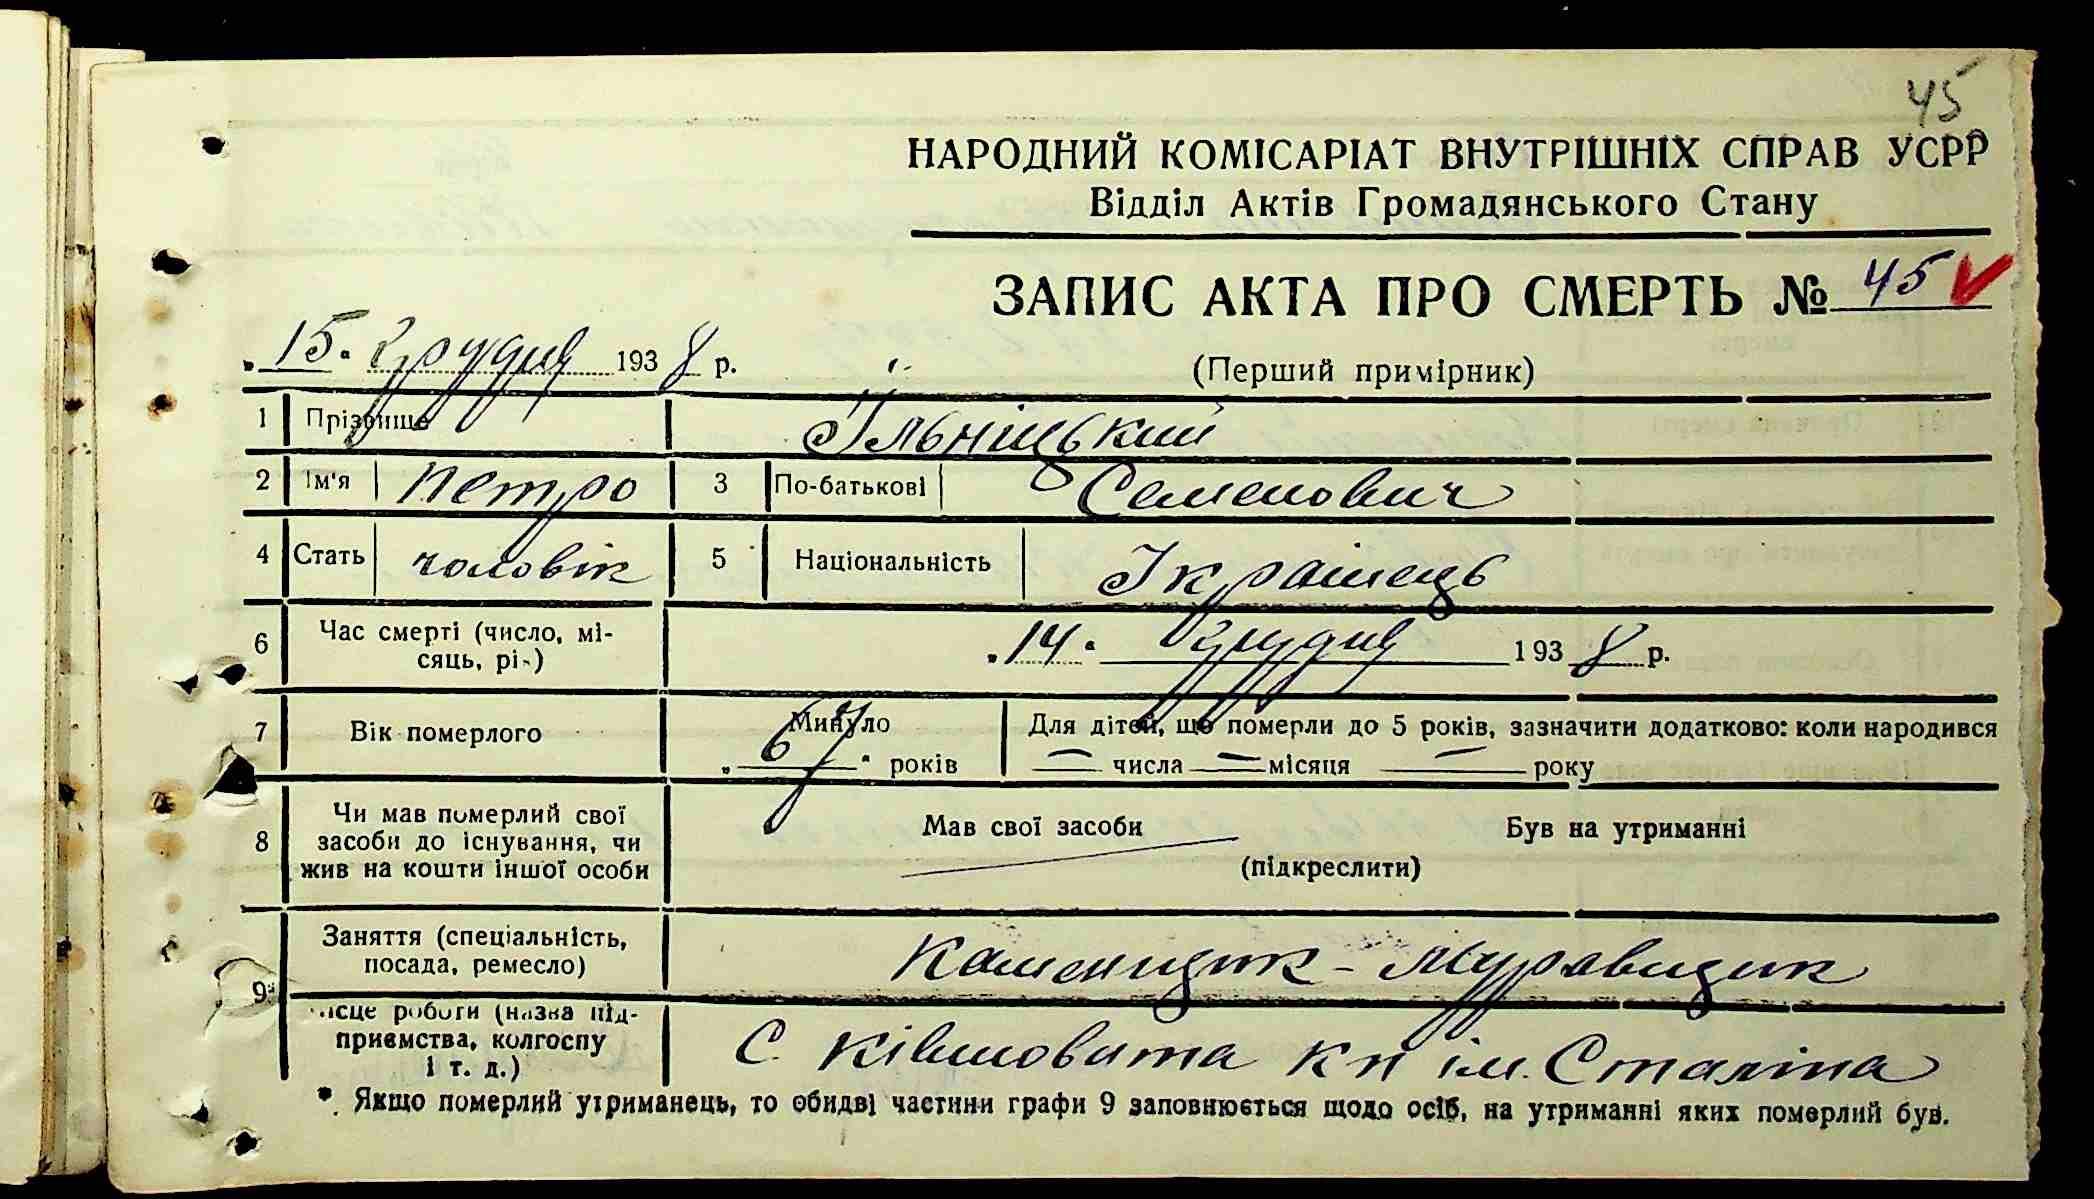 45
НАРОДНИЙ КОМІСАРІАТ ВНУТРІШНІХ СПРАВ УСРР
Відділ Актів Громадянського Стану
ЗАПИС АКТА ПРО СМЕРТЬ № 45
„15" грудня 1938 р.
(Перший примірник)
1 Прізвище Їльніцький
2 Ім'я Петро 3 По-батькові Семенович
4 Стать чоловік 5 Національність Українець
6 Час смерті (число, мі-
сяць, рік) „14" грудня 1938 р.
7 Вік померлого Минуло „67" років Для дітей, що померли до 5 років, зазначити додатково: коли народився
— числа — місяця — року
8 Чи мав померлий свої
засоби до існування, чи
жив на кошти іншої особи
Мав свої засоби Був на утриманні
(підкреслити)
9* Заняття (спеціальність,
посада, ремесло) Каменщик - муравщик
Місце роботи (назва під-
приємства, колгоспу
і т. д.) С. Ківшовата кп ім. Сталіна
*. Якщо померлий утриманець, то обидві частини графи 9 заповнюється щодо осіб, на утриманні яких померлий був.